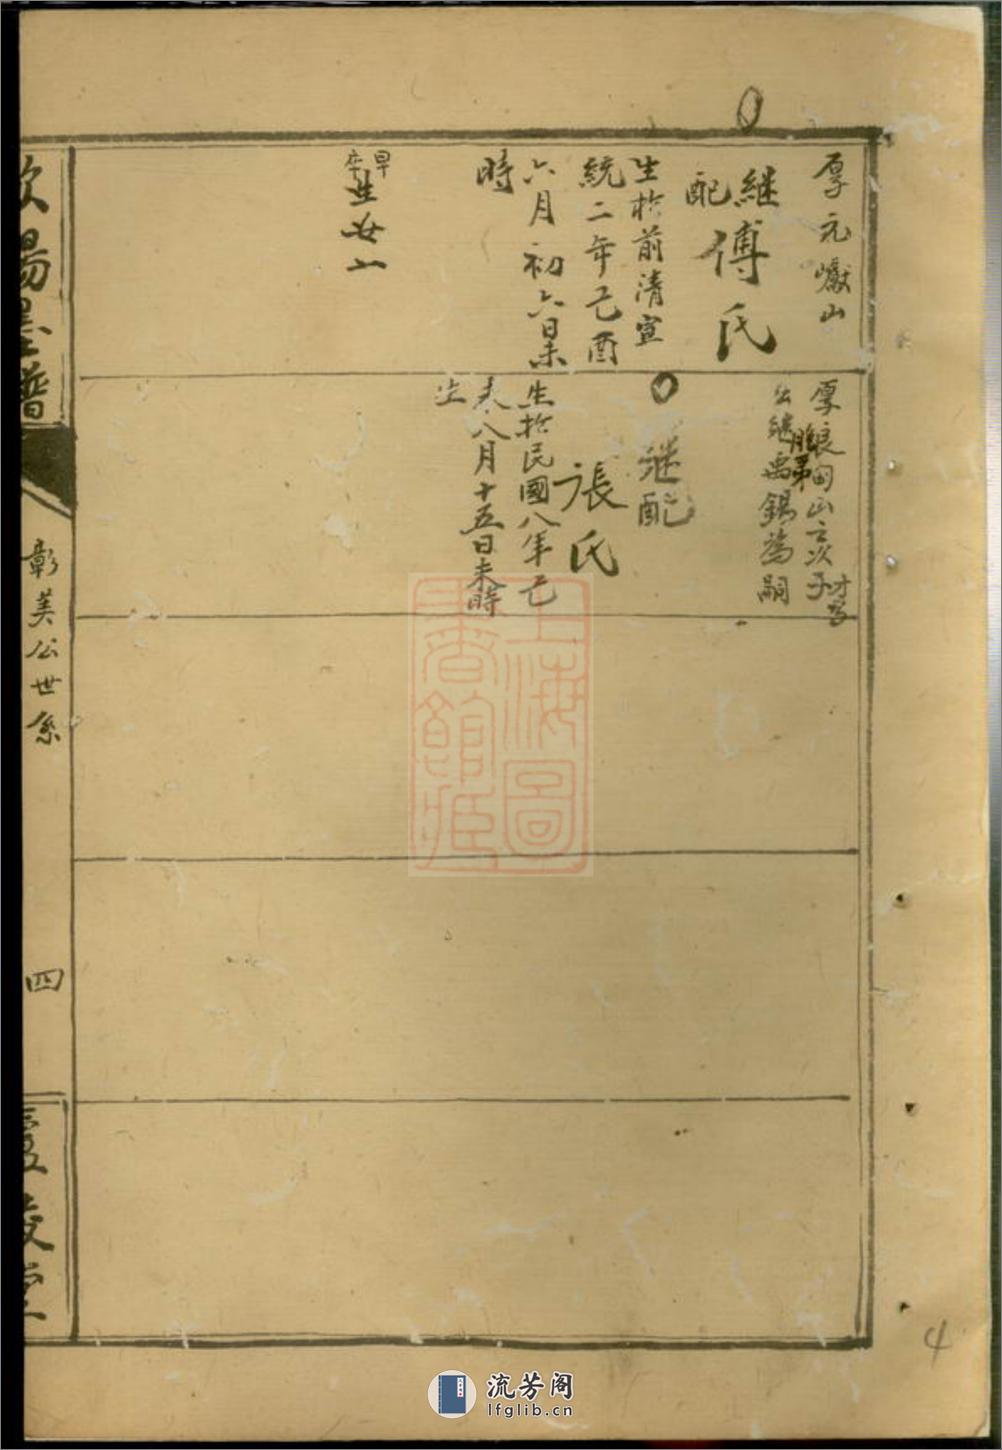 厚元巘山
继配
傅氏
生扵前清宣
統二年己酉
六月初六日未
時
早卒
生女一
厚良甸山之次子
公继禹錫為嗣
胞弟
继配
張氏
生扵民國八年己
未八月十五日未時
生
墨譜
彰美公世系
四
堂
上海圖
書館藏
4
流芳阁
lfglib.cn